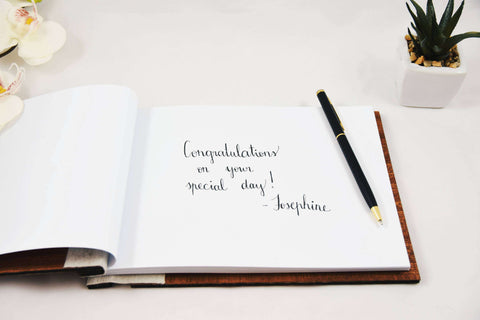 Congratulations
on your
special day!
- Josephine